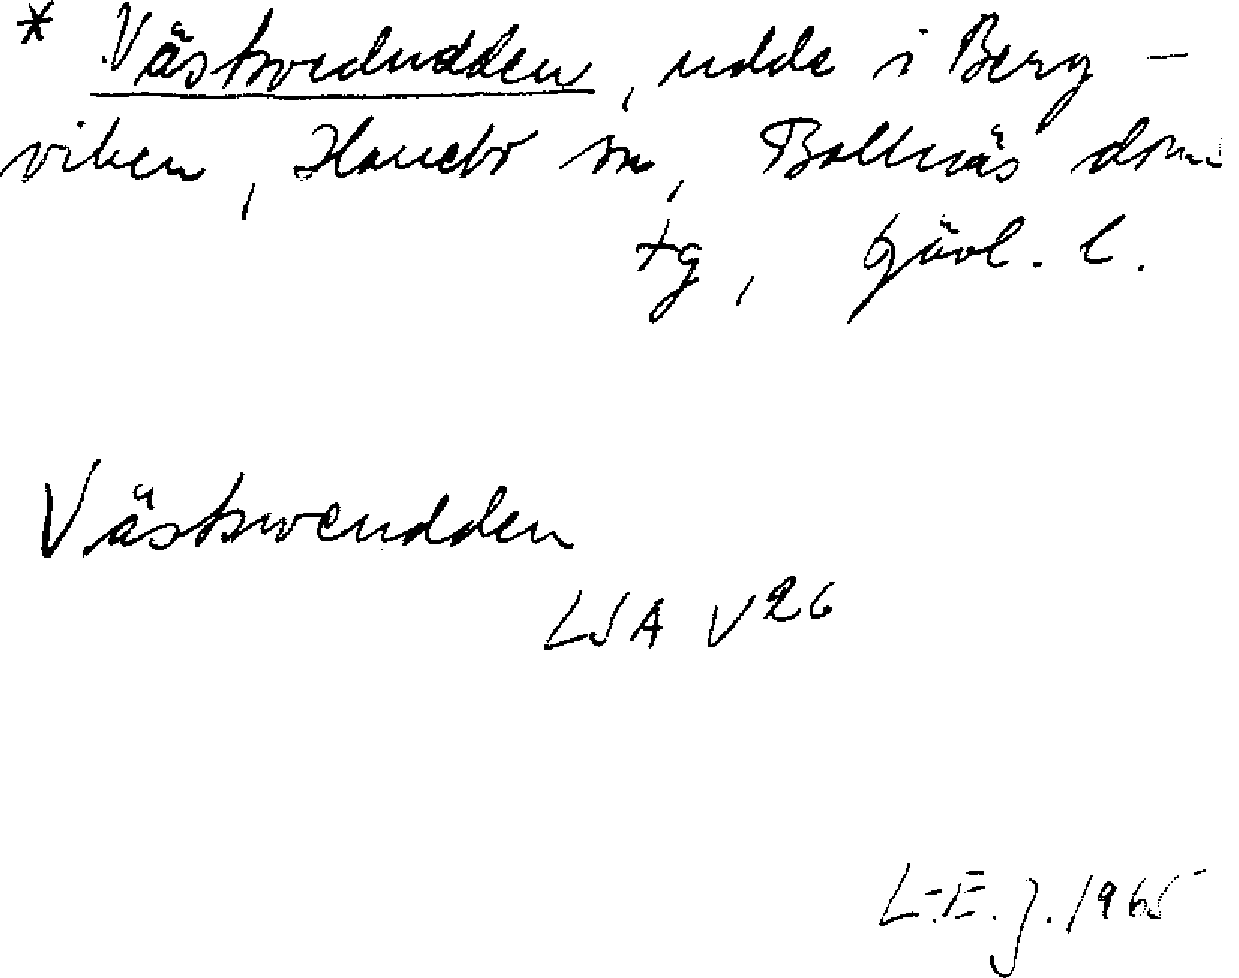 * Västwedudden, udde i Berg-
viken, Hanebo sn, Bollnäs dom
tg, Gävl. l.
Västsweudden
LSA V26
L-E. J. 1965